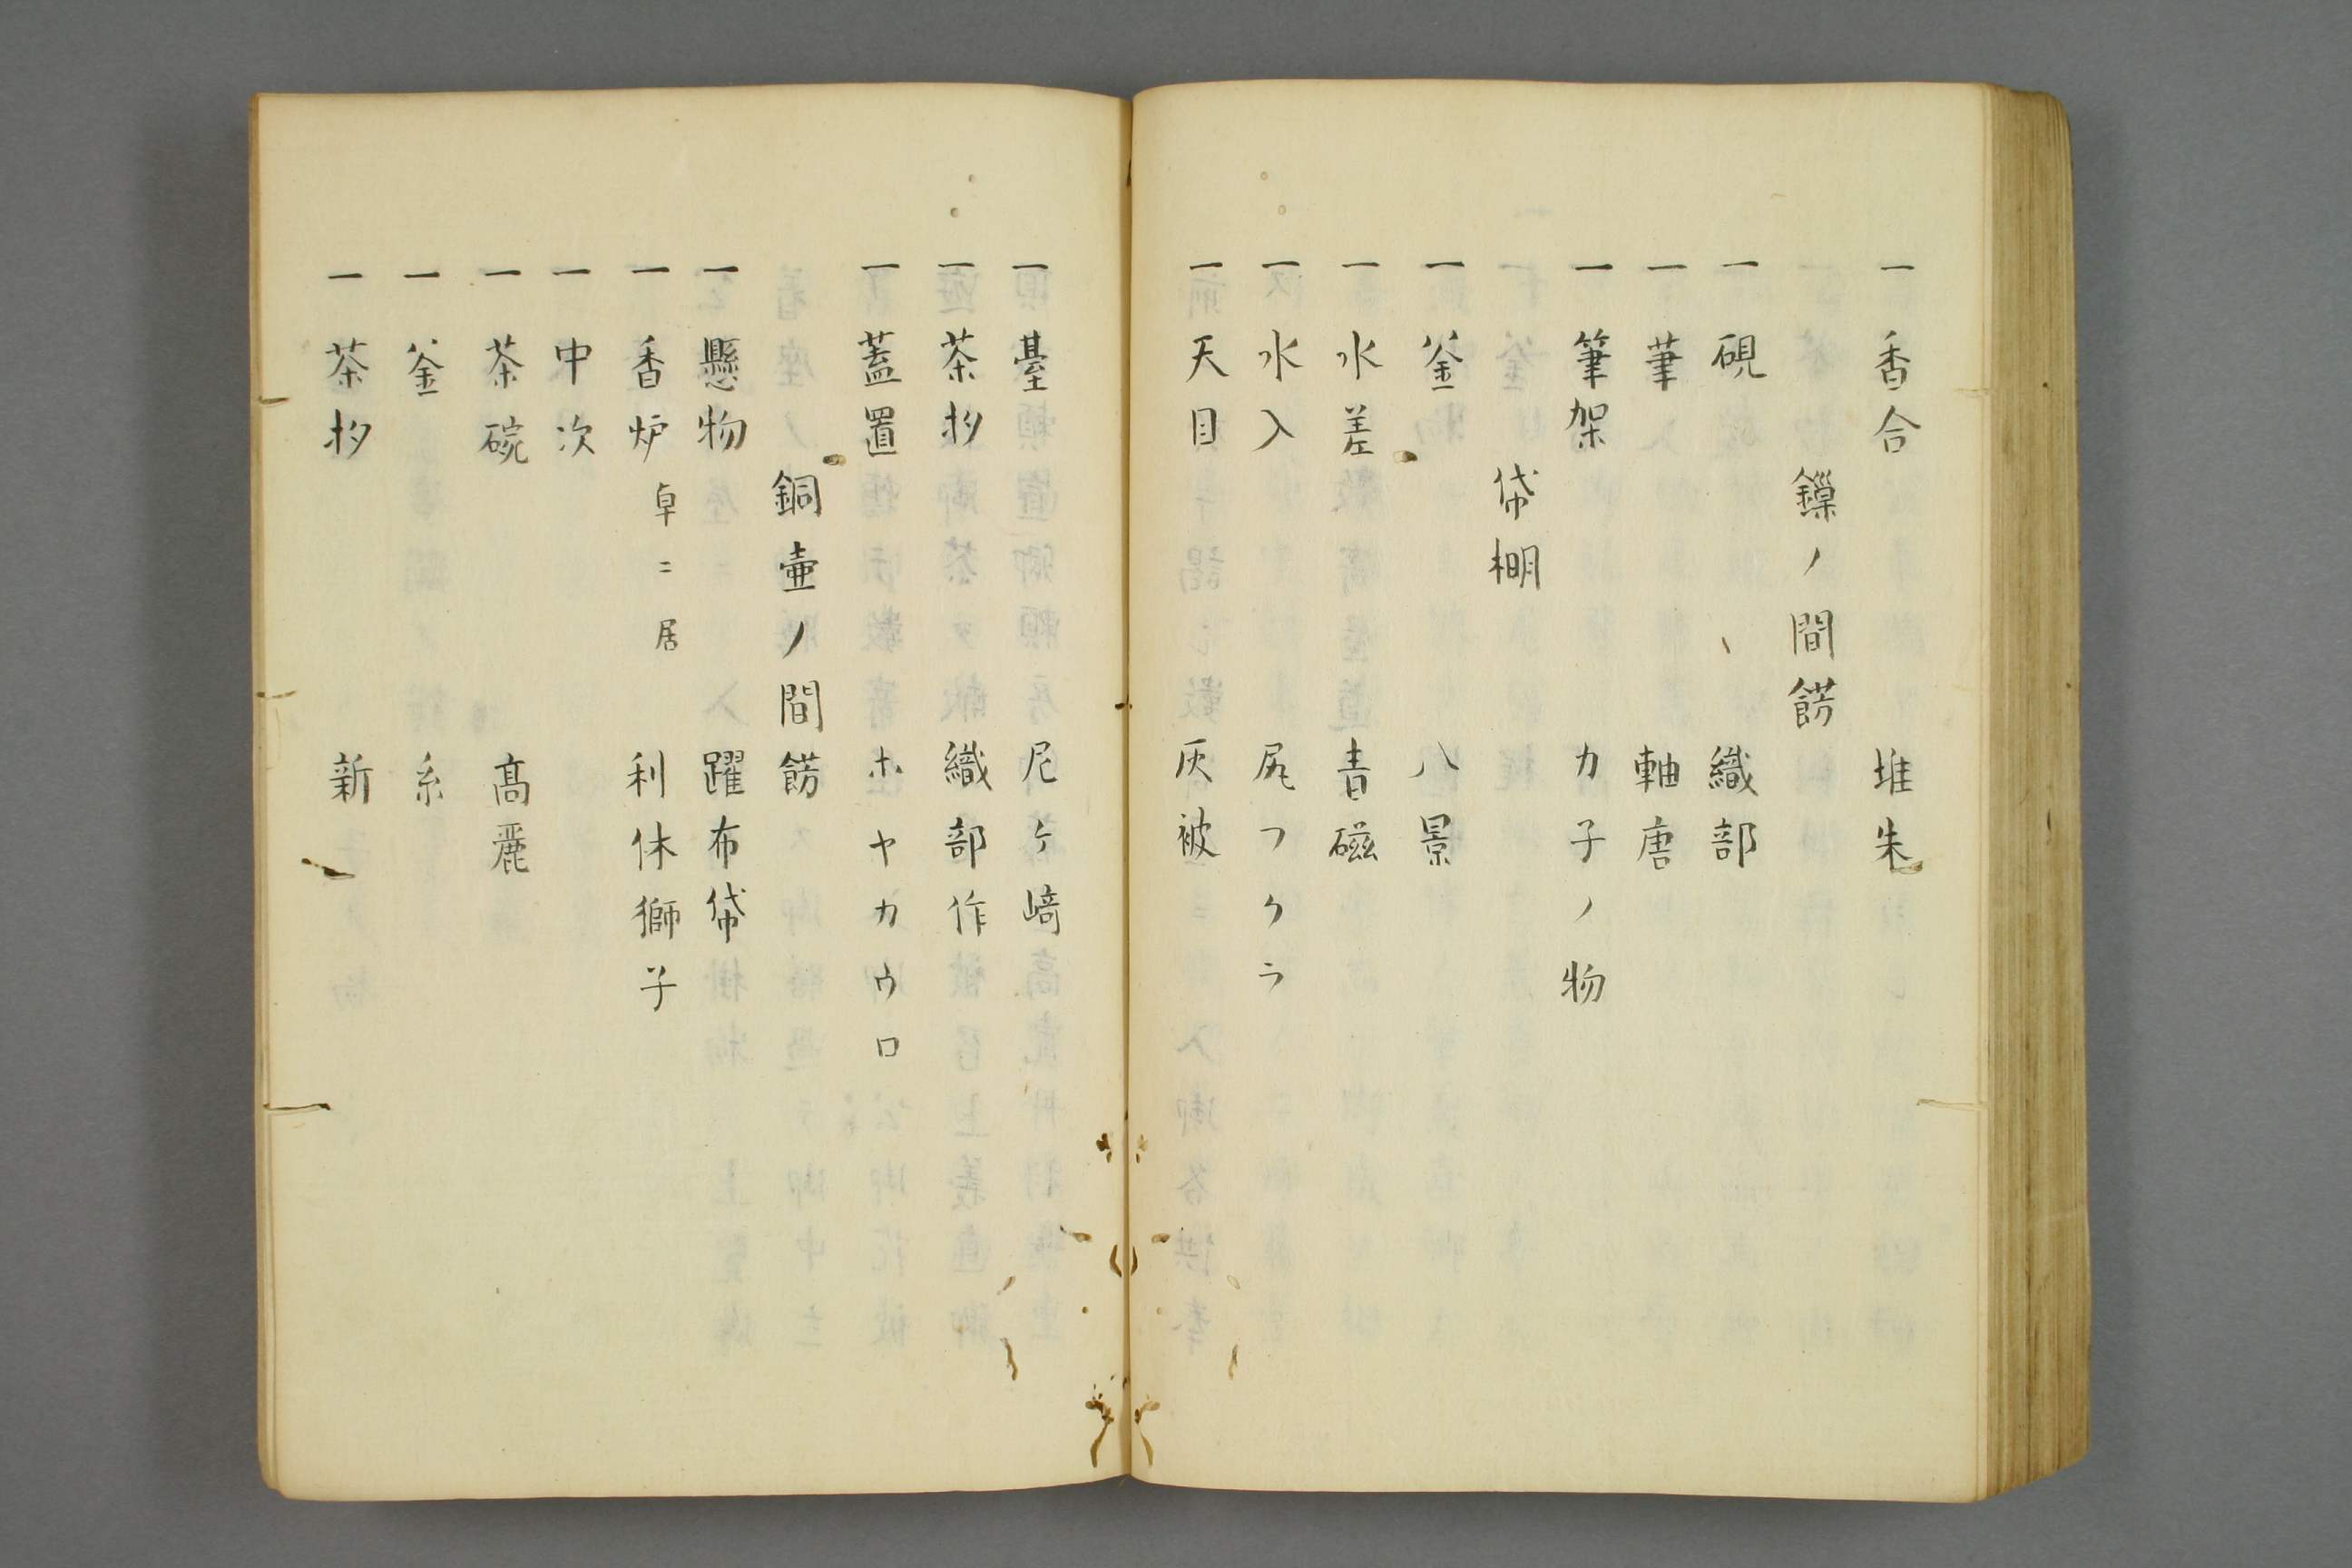 一 香合 堆朱
鏁ノ間餝
一 硯 織部
一 筆 軸唐
一 筆架 カ子ノ物
帒棚
一 釜 八景
一 水差 青磁
一 水入 尻フクラ
一 天目 灰被
一 臺 尼ヶ﨑
一 茶杓 織部作
一 蓋置 ホヤカウロ
銅壷ノ間餝
一 懸物 躍布帒
一 香炉 卓ニ居 利休獅子
一 中次
一 茶碗 髙麗
一 釜 糸
一 茶杓 新